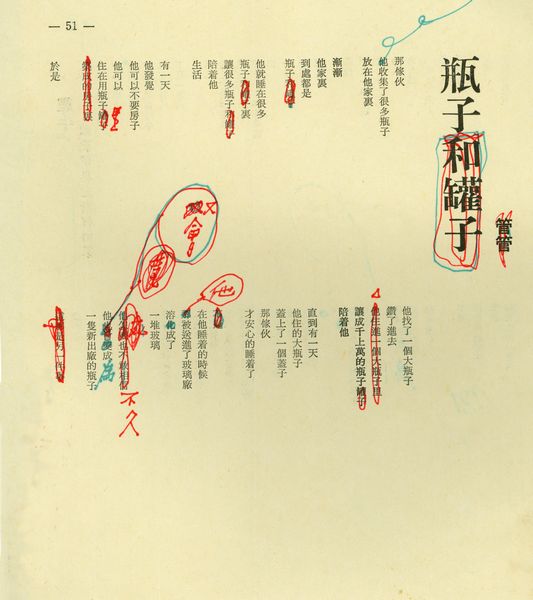 — 51 —
瓶子和罐子
管管
那傢伙
他收集了很多瓶子
放在他家裏
漸漸
他家裏
到處都是
瓶子
他就睡在很多
瓶子罐子裏
讓很多瓶子和罐
陪着他
生活
有一天
他發覺
他可以不要房子
他可以
住在用瓶子罐
築成的房子裏
於是
他找了一個大瓶子
鑽了進去
他住進一個大瓶子里
讓成千上萬的瓶子罐子
陪着他
直到有一天
他住的大瓶子
蓋上了一個蓋子
那傢伙
才安心的睡着了
他
在他睡着的時候
被送進了玻璃廠
溶化成了
一堆玻璃
也不敢相信
不久
他 變成
為
一隻新出廠的瓶子
會